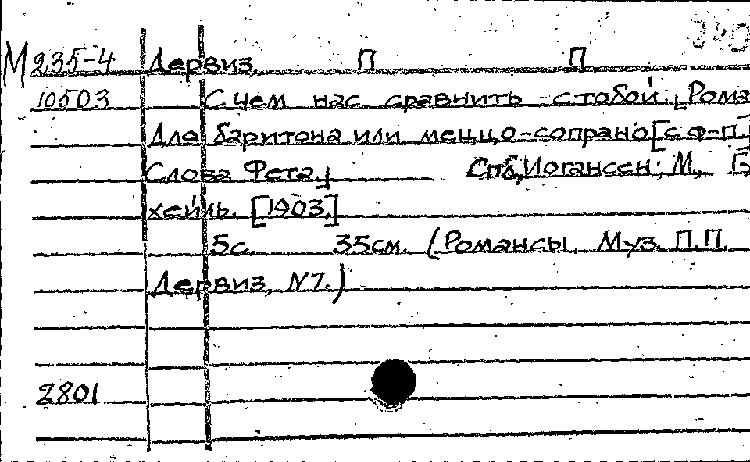 М 235-4 Дервиз, П П
10503 С чем нас сравнить с тобой. [Рома
Для баритона или меццо-сопрано [с ф-п.]
Слова Фета.] Спб, Иогансен; М., Б
хейль. [1903.]
5с. 35см. (Романсы. Муз. П.П.
Дервиз, №7.)
2801